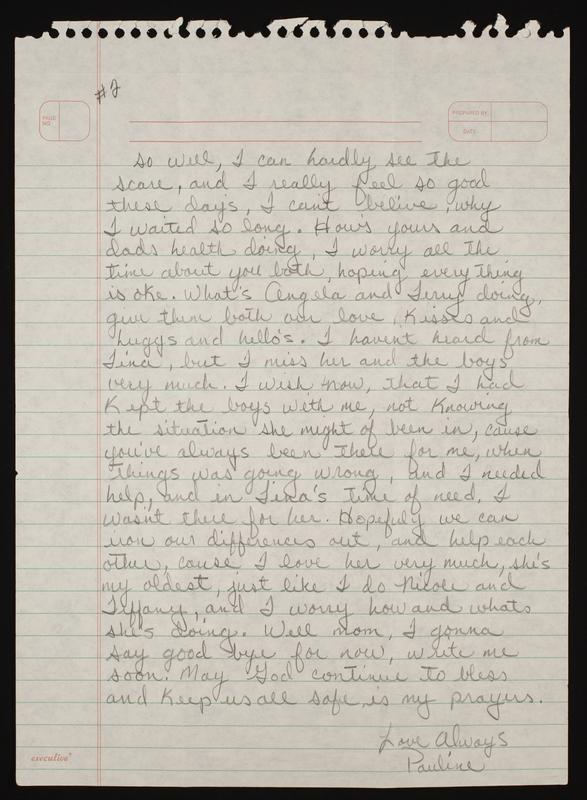 #2
PAGE NO.
PREPARED BY:
DATE:
so well, I can hardly see the
scare, and I really feel so good
these day's, I can't belive, why
I waited so long. How's yours and
dads health doing, I worry all the
time about you both, hoping every thing
is oke. What's Angela and Terry doing,
give them both our love, Kisses and
huggs and hello's. I havent heard from
Tina, but I miss her and the boys
very much. I wish now, that I had
Kept the boys with me, not Knowing
the situation she might of been in, cause
you've always been there for me, when
things was going wrong, and I needed
help, and in Tina's time of need, I
wasn't there for her. Hopefuly we can
iron our differences out, and help each
other, cause I love her very much, she's
my oldest, just like I do Nicole and
Tiffany, and I worry how and whats
she's doing. Well mom, I gonna
say good bye for now, write me
soon. May God continue to bless
and Keep us all safe, is my prayers.
Love Always
Pauline
executive